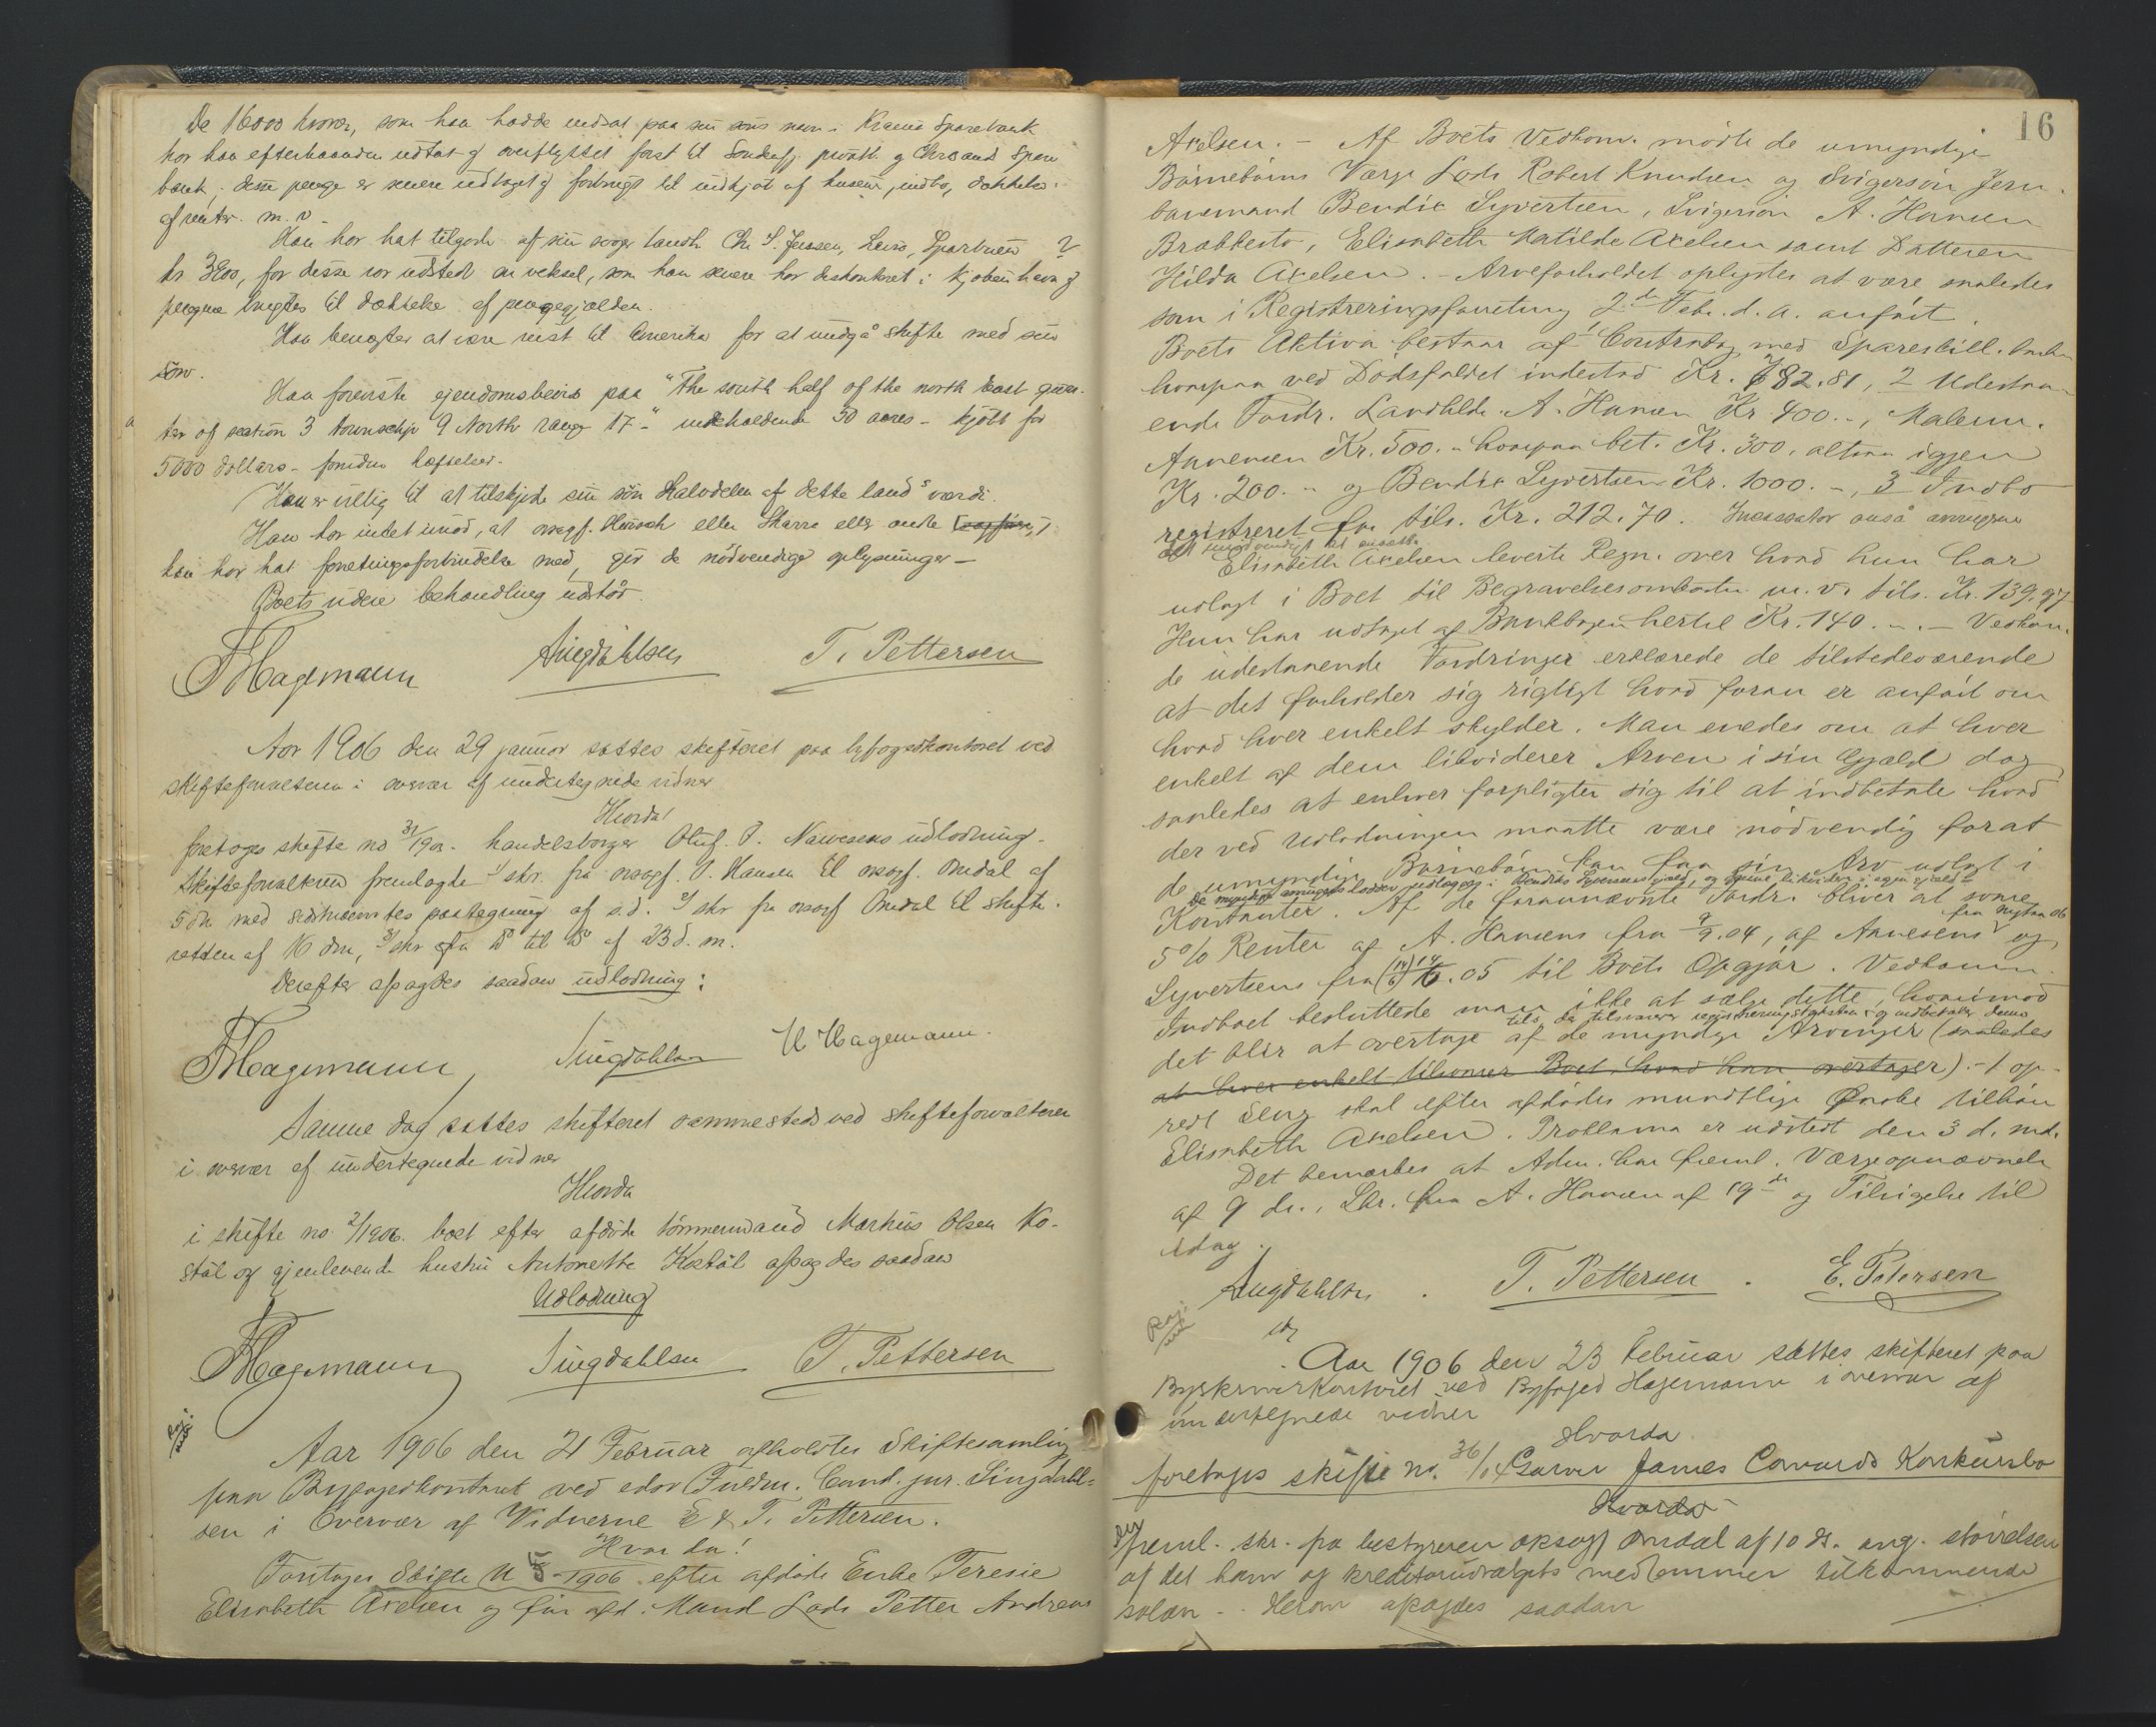 De 16000 kroner, som han hadde indsat paa sin søns navn i Kranø Sparebank
har han efterhaanden udtat og overflyttet først til Søndefj. privatb. og Chrsands Spare
bank; disse penge er senere udtaget og forbrugt til indkjøb af huset, indbo, dækkelse
af renter m. v.
Han har hat tilgode af sin svoger landh. Chr. S. Jensen,
kr 3200, for disse var udstedt en veksel, som han senere har diskonteret i Kjøbenhavn og
pengene brugtes til dækkelse af pengegjælden.
Han benægter at være reist til Amerika for at undgå skifte med sin
søn.
Han foreviste ejendomsbevis paa "The south half of the north east quar-
ter of section 3 township 9 North range 17-" indeholdende 50 acres - kjøbt for
5000 dollars - foruden hæftelser.
Han er villig til at tilskjøde sin søn Halvdelen af dette land's værdi.
Han har intet imod, at orsagf. Hirsch eller Skarre eller andre
han har hat forretningsforbindelse med, gir de nødvendige oplysninger -
Boets videre behandling udstår.
Hagemann Singdahlsen T. Pettersen
Aar 1906 den 29 januar sattes skifteret paa byfogedkontoret ved
skifteforvalteren i overvær af undertegnede vidner
Hvorda!
foretoges skifte no 31/1902. handelsborger Oluf P. Nawesens udlodning.
Skifteforvalteren fremlagde 1) skr. fra orsagf. P. Hansen til orsagf. Omdal af
5 dr med sidstnævntes paategning af s.d. 2) skr fra orsagf Omdal til skifte-
retten af 16 dm, 3) skr fra do til do af 23 d. m.
Derefter afsagdes saadan udlodning:
Hagemann Singdahlsen H Hagemann.
Samme dag sattes skifteret sammesteds ved skifteforvalteren
i overvær af undertegnede vidner
Hvorda
i skifte no. 2/1906. boet efter afdøde tømmermand Markus Olsen Ko-
støl og gjenlevende hustru Antonette Kostøl afsagdes saadan
Udlodning
Hagemann Singdahlsen T. Pettersen
Aar 1906 den 21 Februar afholdtes Skiftesamling
paa Byfogedkontoret ved edsv. Fuldm. Cand. jur. Singdahl-
sen i Overvær af Vidnerne E & T. Pettersen.
Hvor da!
Foretoges Skifte N 5 - 1906 efter afdøde Enke Teresie
Elisabeth Axelsen og før afd. Mand Lods Petter Andreas
16
Axelsen. - Af Boets Vedkom. mødte de umyndige
Børnebørns Værge Lods Robert Knudsen og Svigersøn Jern-
banemand Bendix Syvertsen, Svigersøn A. Hansen
Brækkestø, Elisabeth Matilde Axelsen samt Datteren
Hilda Axelsen. - Arveforholdet oplystes at være saaledes
som i Registreringsforretning 2den Febr. d. a. anført.
Boets Aktiva bestaar af 1 Contrabog med Sparesbill. banken
hvorpaa ved Dødsfaldet indestod Kr. 782.81, 2 Udestaa-
ende Fordr. Landhdl. A. Hansen Kr. 400.-, Malerm.
Annensen Kr. 500.- hvorpaa bet. Kr. 300, altsaa igjen
Kr. 200.- og Bendix Syvertsen Kr. 1000.-, 3 Indbo
registreret for tils. Kr. 212.70. Incassator anså arvingerne
det unødvendigt at ansætte
Elisabeth Axelsen leverte Regn. over hvad hun har
udlagt i Boet til Begravelsesomkostn. m. v. tils. Kr. 139.97
Hun har udtaget af Bankbogen hertil Kr. 140.-.- Vedkom.
de udestaaende Fordringer erklærede de tilstedeværende
at det forholder sig rigtigt hvad foran er anført om
hvad hver enkelt skylder. Man enedes om at hver
enkelt af dem likviderer Arven i sin Gjæld dog
saaledes at enhver forpligter sig til at indbetale hvad
der ved Udlodningen maatte være nødvendig for at
de umyndige Børnebørn kan faa sin Arv udlagt i
De myndige arvinges lodder udlægges i Bendiks Syvertsens gjæld, og denne likviderer i egen gjæld
Kontanter. Af de forannævnte Fordr. bliver at svare
5 % Renter af A. Hansens fra 9/9.04, af Annesens fra Nytaar 06 og
Syvertsens fra 14/6.05 til Boets Opgjør. Vedkomm.
Indboet besluttede man ikke at sælge dette, hvorimod
det blir at overtage af de myndige Arvinger (saaledes
tils. de tilsvarer registreringstaksten og indbetaler denne
at hver enkelt tilsvarer Boet, hvad han overtager). - 1 op-
redt Seng skal efter afdødes mundtlige Ønske tilhøre
Elisabeth Axelsen. Proklama er udstedt den 3 d. md.
Det bemærkes at Adm. har freml. Værgeopnævnelse
af 9 ds., Skr. fra A. Hansen af 19de og Tilsigelse til
idag.
Singdahlsen. T. Pettersen. E. Petersen
Aar 1906 den 23 Februar sættes skifteret paa
Byskriverkontoret ved Byfoged Hagemann i overvær af
undertegnede vidner
Hvorda
foretages skifte no. 36/04 Garver James Cawards Konkursbo
Hvorda
freml. skr. fra bestyreren oksagf Omdal af 10 ds. ang. størrelsen
af det ham og kreditorudvalgets medlemmer tilkommende
salær. - Herom afsagdes saadan